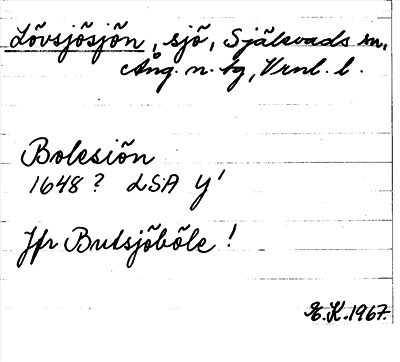 Lövsjösjön, sjö, Själevads sn,
Ång. n. tg, Vrnl. l.
Bolesiön
1648 ? LSA Y'
Jfr Butsjöböle !
E.K. 1967.